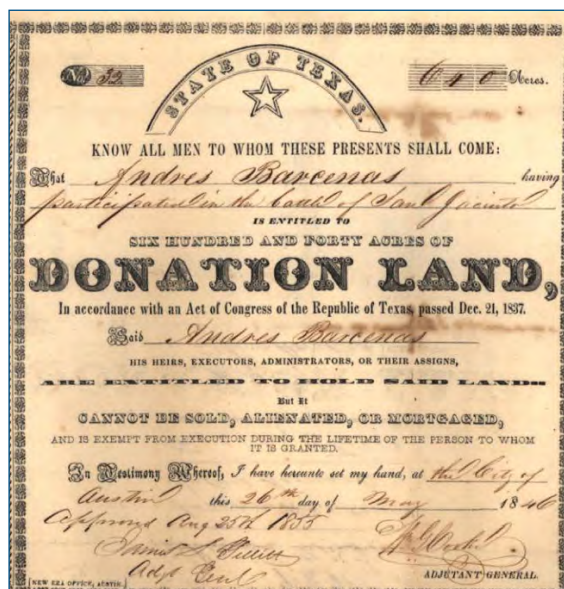 STATE OF TEXAS.
No 32
640 Acres.
KNOW ALL MEN TO WHOM THESE PRESENTS SHALL COME:
That Andres Barcenas having
participated in the battle of San Jacinto
IS ENTITLED TO
SIX HUNDRED AND FORTY ACRES OF
DONATION LAND,
In accordance with an Act of Congress of the Republic of Texas, passed Dec. 21, 1837.
Said Andres Barcenas
HIS HEIRS, EXECUTORS, ADMINISTRATORS, OR THEIR ASSIGNS,
ARE ENTITLED TO HOLD SAID LAND
But It
CANNOT BE SOLD, ALIENATED, OR MORTGAGED,
AND IS EXEMPT FROM EXECUTION DURING THE LIFETIME OF THE PERSON TO WHOM
IT IS GRANTED.
In Testimony Whereof, I have hereunto set my hand, at the City of
Austin this 26th day of May 1846
Approved Aug 25th 1855
James S. Gillett
Adjt Genl
ADJUTANT GENERAL.
[NEW ERA OFFICE, AUSTIN.]